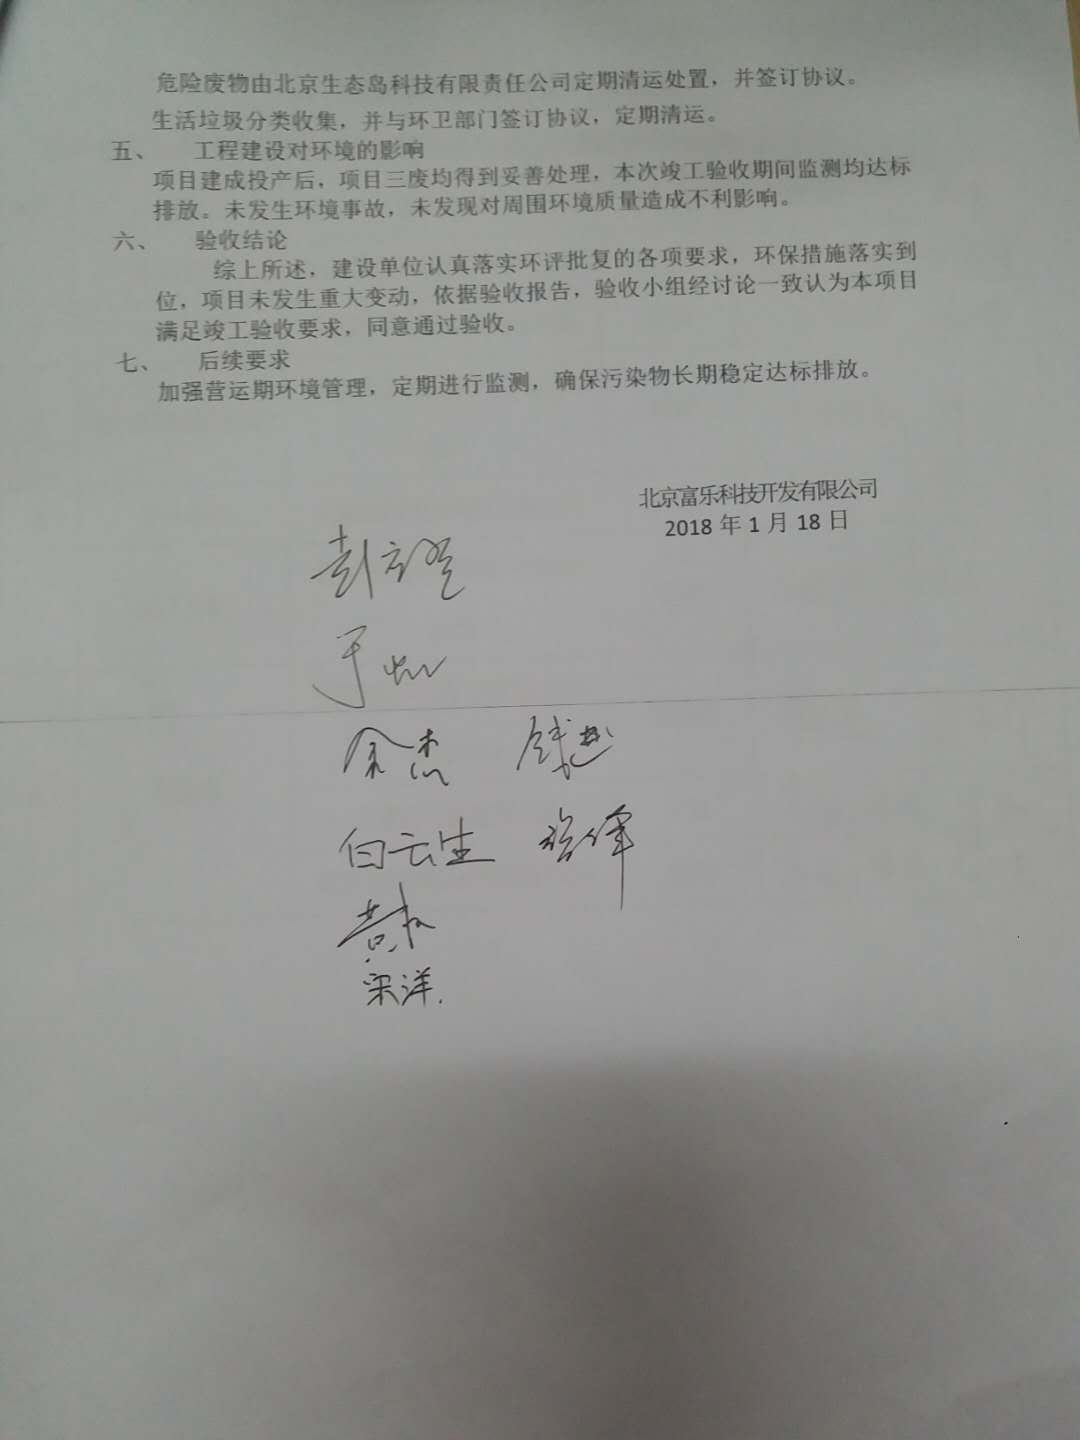 危险废物由北京生态岛科技有限责任公司定期清运处置，并签订协议。
生活垃圾分类收集，并与环卫部门签订协议，定期清运。
五、 工程建设对环境的影响
项目建成投产后，项目三废均得到妥善处理，本次竣工验收期间监测均达标
排放。未发生环境事故，未发现对周围环境质量造成不利影响。
六、 验收结论
综上所述，建设单位认真落实环评批复的各项要求，环保措施落实到
位，项目未发生重大变动，依据验收报告，验收小组经讨论一致认为本项目
满足竣工验收要求，同意通过验收。
七、 后续要求
加强营运期环境管理，定期进行监测，确保污染物长期稳定达标排放。
北京富乐科技开发有限公司
2018 年 1 月 18 日
彭
于
余杰
白云生
黄
宋洋.